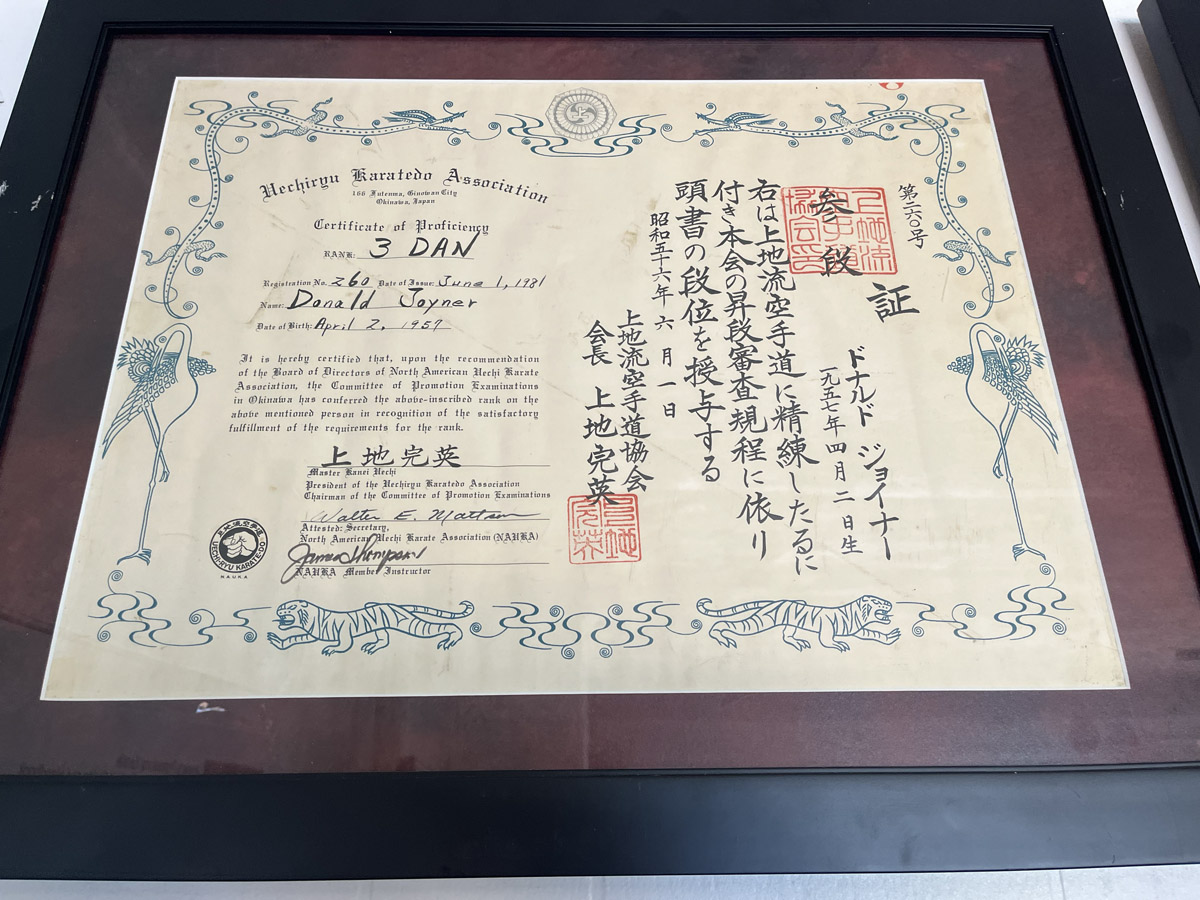 Uechiryu Karatedo Association
166 Futenma, Ginowan City
Okinawa, Japan
Certificate of Proficiency
RANK: 3 DAN
Registration No. 260 Date of Issue: June 1, 1981
Name: Donald Joyner
Date of Birth: April 2, 1957
It is hereby certified that, upon the recommendation
of the Board of Directors of North American Uechi Karate
Association, the Committee of Promotion Examinations
in Okinawa has conferred the above-inscribed rank on the
above mentioned person in recognition of the satisfactory
fulfillment of the requirements for the rank.
上地完英
Master Kanei Uechi
President of the Uechiryu Karatedo Association
Chairman of the Committee of Promotion Examinations
Walter E. Mattson
Attested: Secretary,
North American Uechi Karate Association (NAUKA)
James Thompson
NAUKA Member Instructor
UECHI-RYU KARATE-DO
NAUKA
第二六〇号
証
参段
ドナルド ジョイナー
一九五七年四月二日生
右は上地流空手道に精練したるに
付き本会の昇段審査規程に依り
頭書の段位を授与する
昭和五十六年六月一日
上地流空手道協会
会長 上地完英